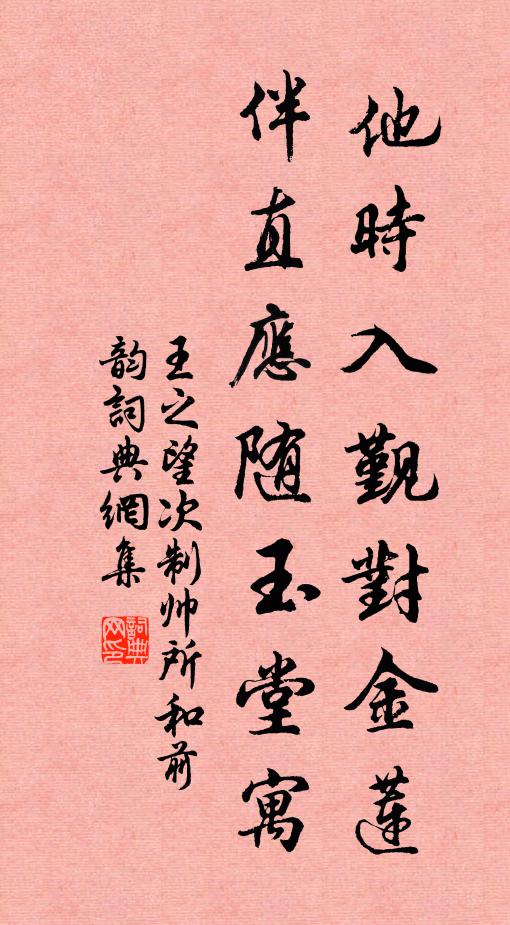 他時入覲對金蓮
伴直應随玉堂寓
王之望次制帅所和前
韵詞典網集
詞典网印